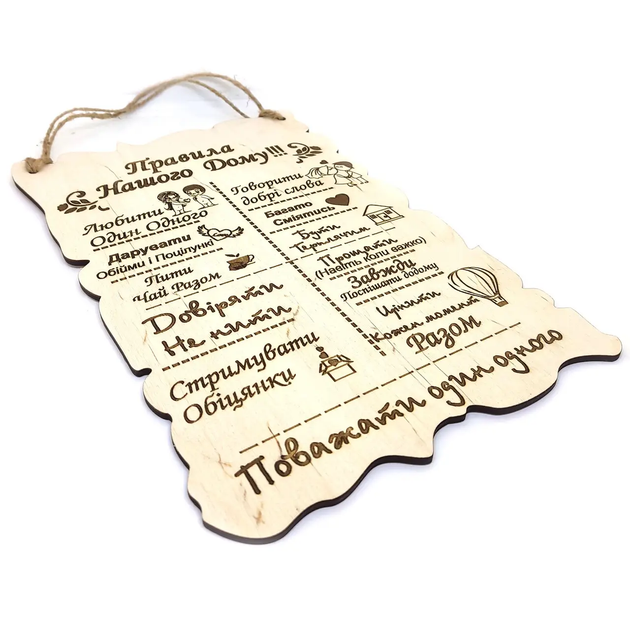 Правила
Нашого Дому!!!
Любити
Один Одного
Дарувати
Обійми і Поцілунки
Пити
Чай Разом
Довіряти
Не нити
Стримувати
Обіцянки
Говорити
добрі слова
Багато
Сміятись
Бути
Терплячим
Прощати
(Навіть коли важко)
Завжди
Поспішати додому
Цінити
Кожен момент
Разом
Поважати один одного